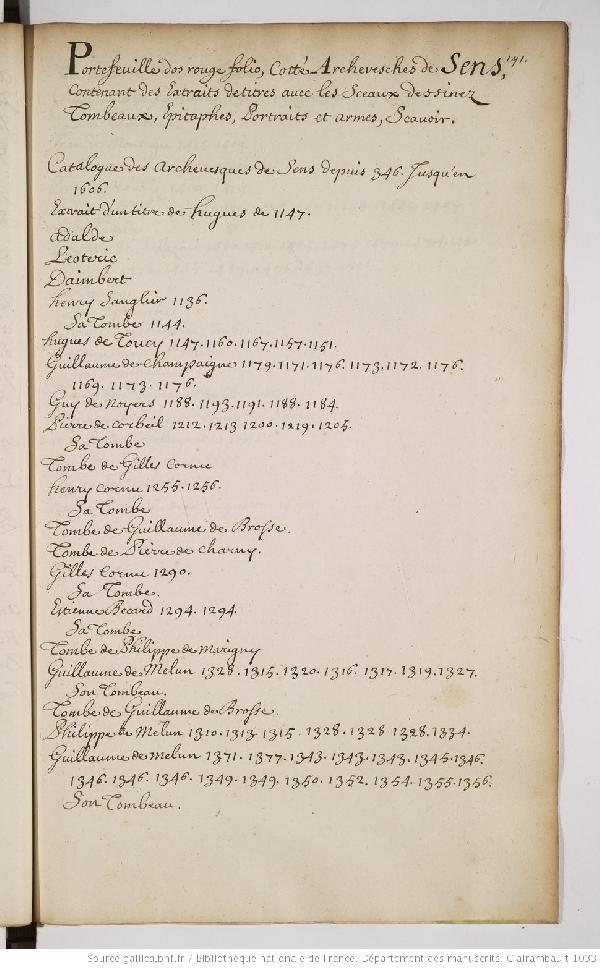 Portefeuille dos rouge folio, Cotté Archevesches de Sens, 141.
Contenant des Extraits de titres avec les Sceaux dessinez
Tombeaux, Epitaphes, Portraits et armes, Scavoir.
Catalogue des Archevesques de Sens depuis 346. Jusqu'en
1606.
Extrait d'un titre de hugues de 1147.
Œdalde
Leoteric
Daimbert
henry Sanglier 1136.
Sa Tombe 1144.
hugues de Toucy 1147.1160.1167.1157.1151.
Guillaume de Champaigne 1179.1171.1176.1173.1172.1176.
1169.1173.1176.
Guy de Noyers 1188.1193.1191.1188.1184.
Pierre de corbeil 1212.1213 1200.1219.1205.
Sa Tombe
Tombe de Gilles Cornu
henry cornu 1255.1256.
Sa Tombe
Tombe de Guillaume de Brosse.
Tombe de Pierre de Charny.
Gilles Cornu 1290.
Sa Tombe.
Estienne Becard 1294.1294.
Sa Tombe
Tombe de Philippe de Marigny
Guillaume de Melun 1328.1315.1320.1316.1317.1319.1327.
Son Tombeau.
Tombe de Guillaume de Brosse.
Philippe de Melun 1310.1313.1315.1328.1328.1328.1334.
Guillaume de Melun 1371.1377.1343.1343.1343.1345.1346.
1346.1346.1346.1349.1349.1350.1352.1354.1355.1356.
Son Tombeau.
Source gallica.bnf.fr / Bibliothèque nationale de France. Département des manuscrits. Clairambault 1033